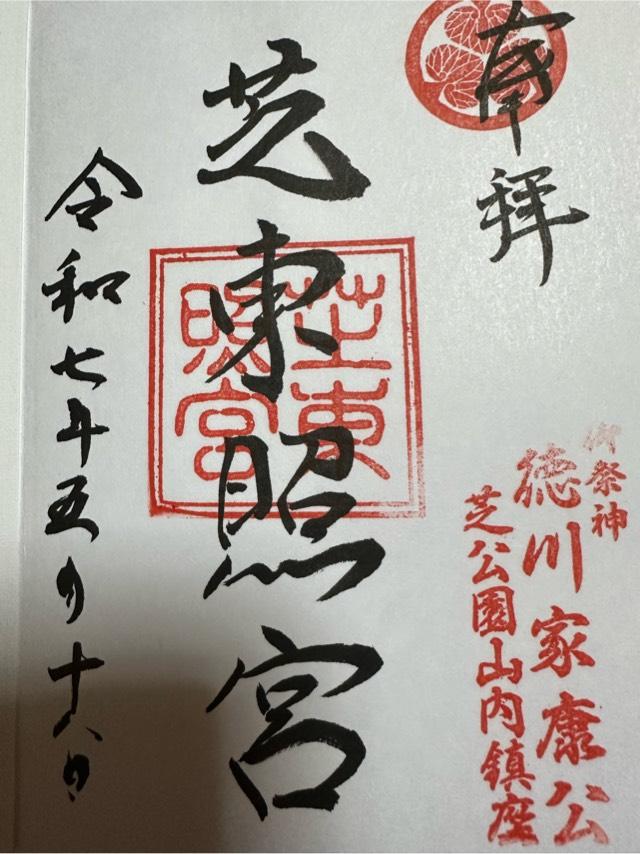 奉拝
御祭神
徳川家康公
芝公園山内鎮座
芝東照宮
芝東照宮
令和七年五月十八日